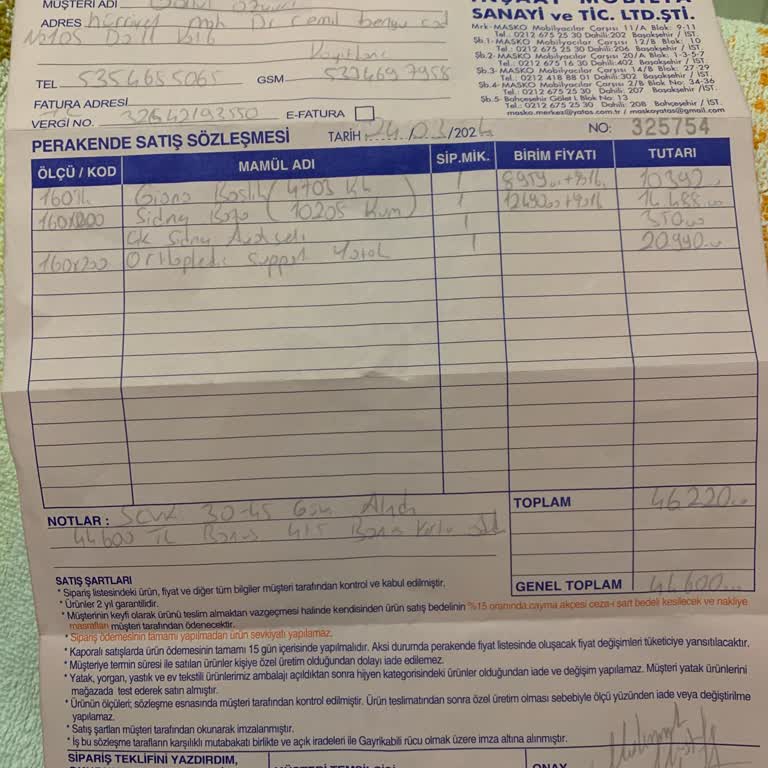 MÜŞTERİ ADI
SANAYİ ve TİC. LTD.ŞTİ.
ADRES hürriyet mah Dr Cemil bengu cad
No105 D:11 K:6
Mrk-MASKO Mobilyacılar Çarşısı 11/A Blok: 9-11
Tel.: 0212 675 25 30 Dahili:202 Başakşehir / İST.
Şb.1-MASKO Mobilyacılar Çarşısı 12/B Blok: 10
Tel.: 0212 675 25 30 Dahili:206 Başakşehir / İST.
Şb.2-MASKO Mobilyacılar Çarşısı 20/A Blok: 1-3-5-7
Tel.: 0212 675 16 30 Dahili:402 Başakşehir / İST.
Şb.3-MASKO Mobilyacılar Çarşısı 14/B Blok: 27-29
Tel.: 0212 418 88 01 Dahili:302 Başakşehir / İST.
Şb.4-MASKO Mobilyacılar Çarşısı 2/B Blok No: 34-36
Tel.: 0212 675 25 30 Dahili: 207 Başakşehir /İST.
Şb.5- Bahçeşehir Gölet I. Blok No: 13
Tel.: 0212 675 25 30 Dahili: 208 Bahçeşehir / İST.
masko.merkez@yatas.com.tr / maskoyatas@gmail.com
TEL 5354655065 GSM 5324697958
FATURA ADRESİ
VERGİ NO. 32542193550 E-FATURA
PERAKENDE SATIŞ SÖZLEŞMESİ TARİH 24/03/2024 NO: 325754
ÖLÇÜ / KOD MAMÜL ADI SİP.MİK. BİRİM FİYATI TUTARI
1 10392
160x200 Sidney Baza (10205 Kum) 1 14.488.00
Ek Sidney 1 350.00
160x200 Ortopedic Support Yatak 1 20990.00
TOPLAM 46220.00
NOTLAR : SEVK 30-45 Gün
44600 TL Bonus
GENEL TOPLAM 44.600
SATIŞ ŞARTLARI
* Sipariş listesindeki ürün, fiyat ve diğer tüm bilgiler müşteri tarafından kontrol ve kabul edilmiştir.
* Ürünler 2 yıl garantilidir.
* Müşterinin keyfi olarak ürünü teslim almaktan vazgeçmesi halinde kendisinden ürün satış bedelinin %15 oranında cayma akçesi ceza-i şart bedeli kesilecek ve nakliye
masrafları müşteri tarafından ödenecektir.
* Sipariş ödemesinin tamamı yapılmadan ürün sevkiyatı yapılamaz.
* Kaporalı satışlarda ürün ödemesinin tamamı 15 gün içerisinde yapılmalıdır. Aksi durumda perakende fiyat listesinde oluşacak fiyat değişimleri tüketiciye yansıtılacaktır.
* Müşteriye termin süresi ile satılan ürünler kişiye özel üretim olduğundan dolayı iade edilemez.
* Yatak, yorgan, yastık ve ev tekstili ürünlerimiz ambalajı açıldıktan sonra hijyen kategorisindeki ürünler olduğundan iade ve değişim yapılamaz. Müşteri yatak ürünlerini
mağazada test ederek satın almıştır.
* Ürünün ölçüleri; sözleşme esnasında müşteri tarafından kontrol edilmiştir. Ürün teslimatından sonra özel üretim olması sebebiyle ölçü yüzünden iade veya değiştirilme
yapılamaz.
* Satış şartları müşteri tarafından okunarak imzalanmıştır.
* İş bu sözleşme tarafların karşılıklı mutabakatı birlikte ve açık iradeleri ile Gayrikabili rücu olmak üzere imza altına alınmıştır.
SİPARİŞ TEKLİFİNİ YAZDIRDIM,
ONAY